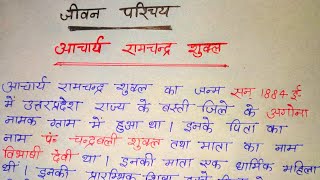 जीवन परिचय
आचार्य रामचन्द्र शुक्ल
आचार्य रामचन्द्र शुक्ल का जन्म सन् 1884 ई
में उत्तरप्रदेश राज्य के बस्ती जिले के अगोना
नामक ग्राम में हुआ था। इनके पिता का
नाम पं चन्द्रबली शुक्ल तथा माता का नाम
विभाषी देवी था। इनकी माता एक धार्मिक महिला
थीं। इनकी प्रारम्भिक शिक्षा